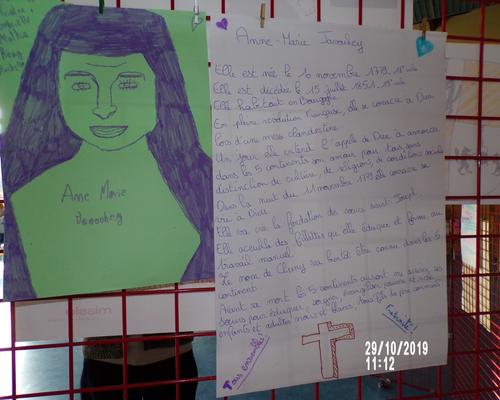 Anne Marie
Anne-Marie Javouhey
Elle est née le 10 novembre 1779. 18e siècle
Elle est décédée le 15 juillet 1851. 19e siècle
Elle habitait en Bourgogne
En pleine révolution française, elle se consacre a Dieu
lors d'une messe clandestine.
Un jour elle entend l'appele a Dieu a annoncer
dans les 5 continents son amour pour tous, sans
distinction de culture, de religions, de conditions sociales
Dans la nuit du 11 novembre 1798 elle consacre sa
vie a Dieu
Elle va cré la fondation des sœurs saint Joseph.
Elle acceuille des fillettes qu'elle éduque et forme au
travail manuel.
Le nom de Cluny va bientôt être connu dans les 5
continent.
Avant sa mort les 5 continents auront vu arriver ses
sœurs pour éduquer, soigner,
enfants et adultes noirs et blancs,
Tous ensembles
29/10/2019
11:12